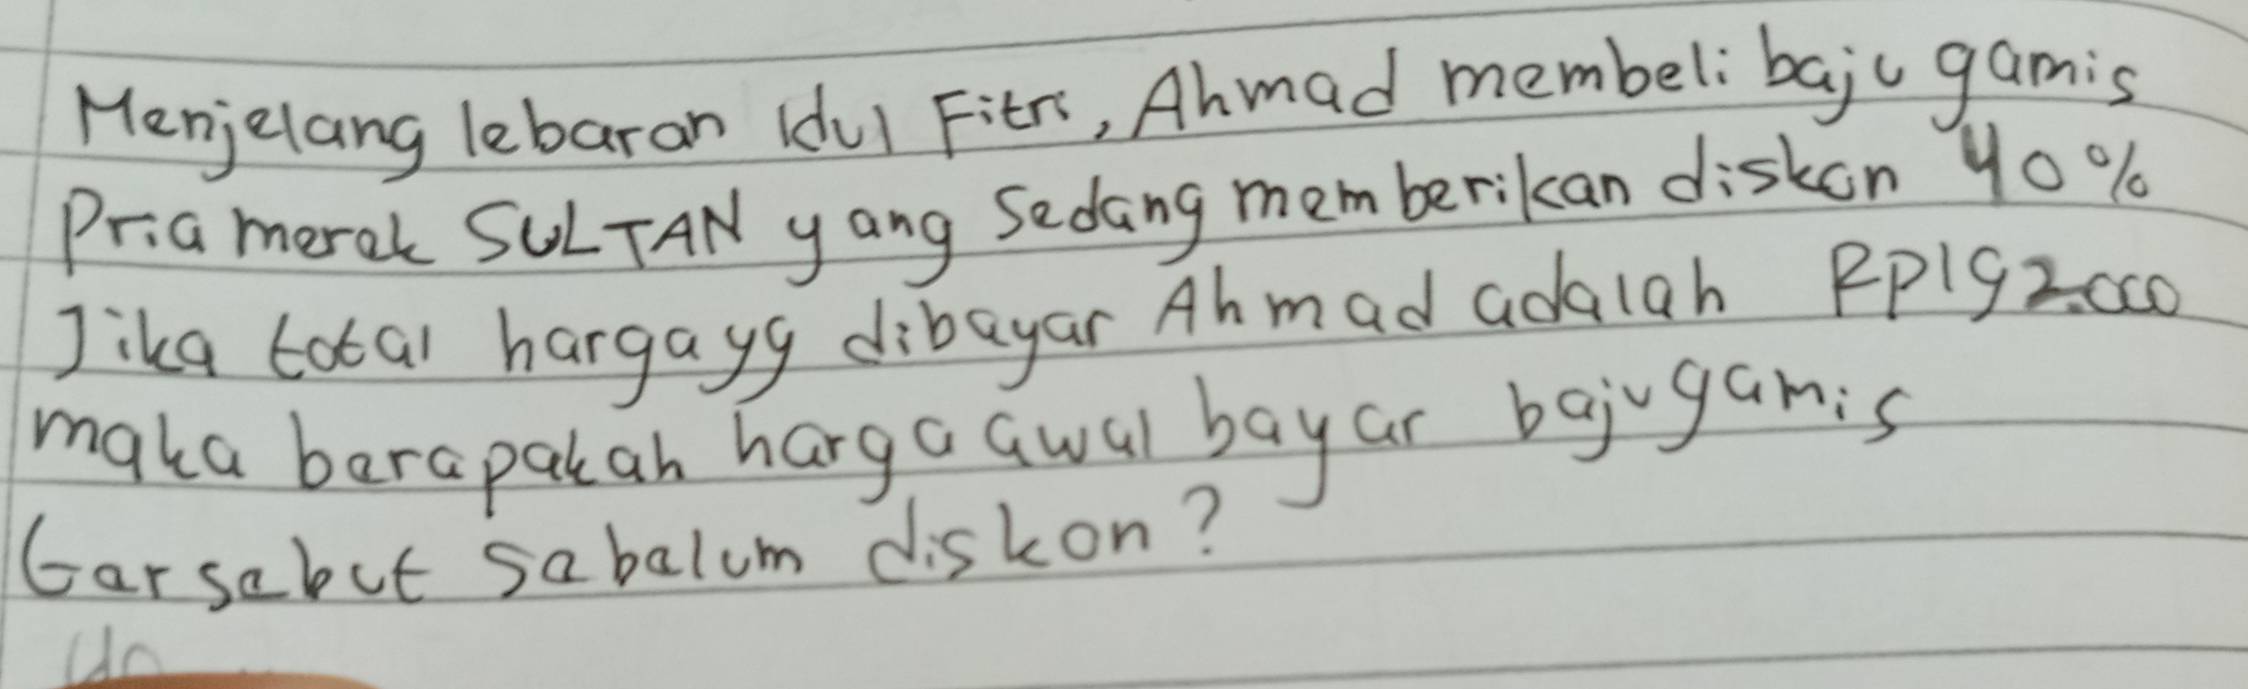 Menjelang lebaran Idul Fitri, Ahmad membeli baju gamis
Pria merek SULTAN yang sedang memberikan diskon 40%
Jika total harga yg dibayar Ahmad adalah Rp192.000
maka berapakah harga awal bayar baju gamis
tersebut sebelum diskon?